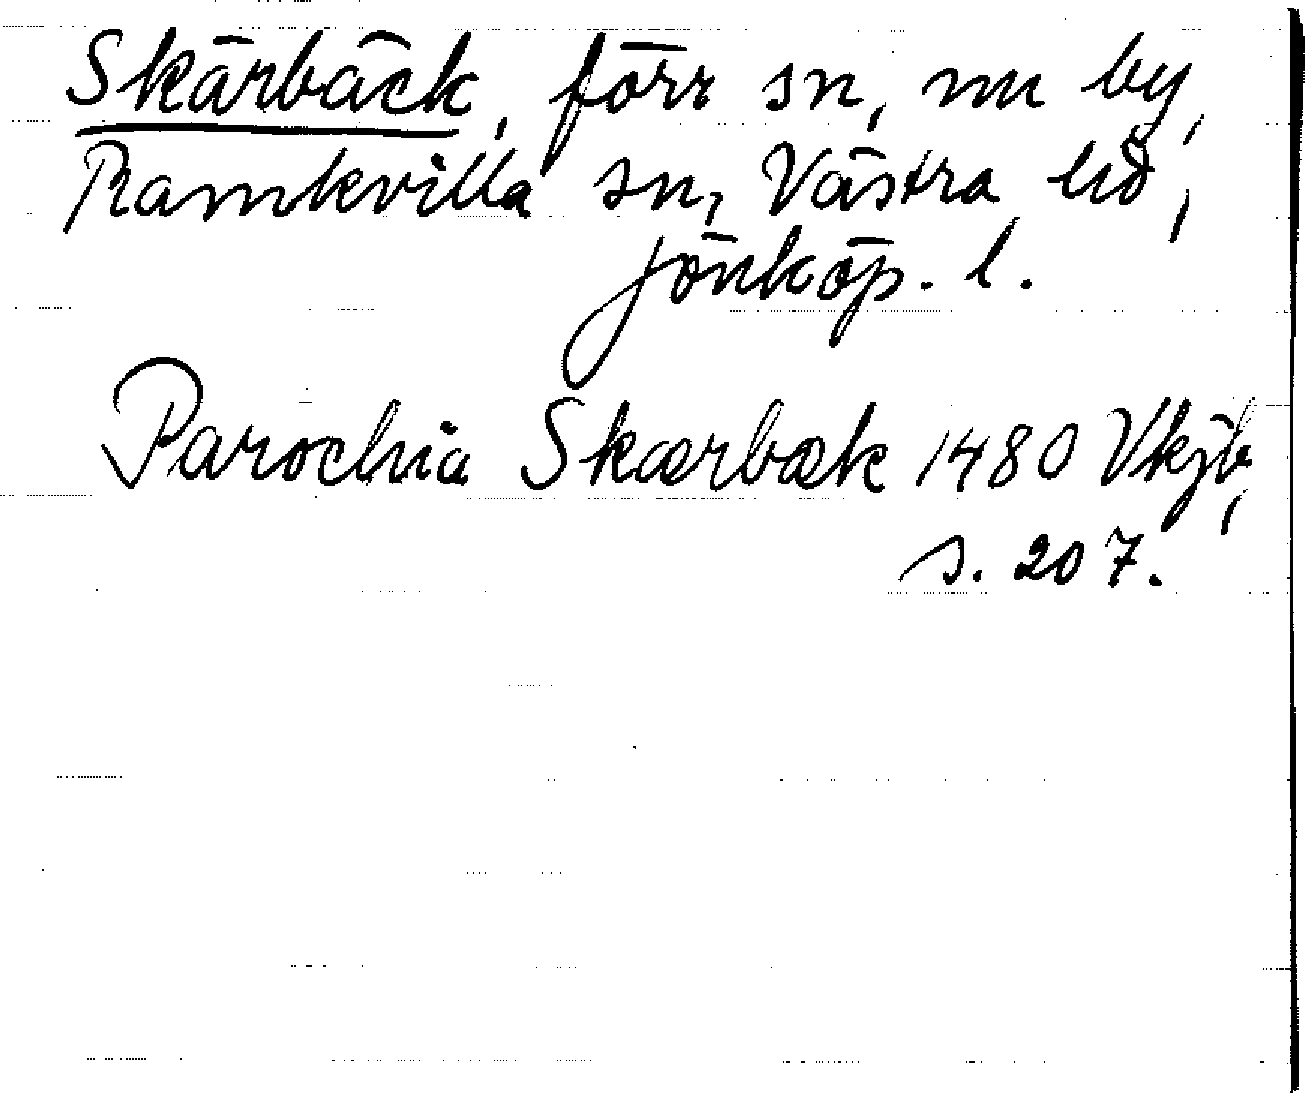 Skärbäck, förr sn, nu by,
Ramkvilla sn, Västra hd,
Jönköp. l.
Parochia Skærbæk 1480 Vkjb,
s. 207.